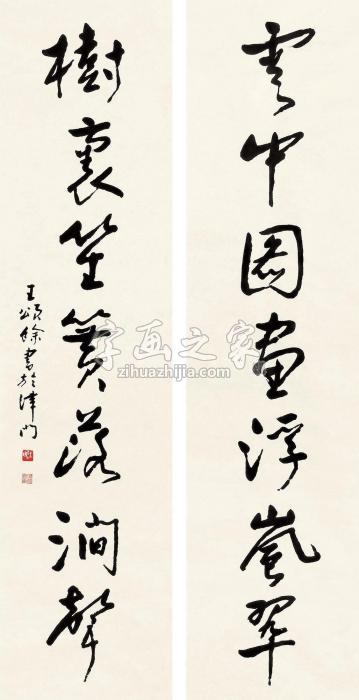 雲中図畫浮嵐翠
樹裏笙簧落澗聲
王頌餘書於津門
字画之家
zihuazhijia.com